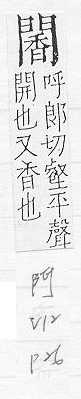 呼郎切壑平聲
開也又香也
門
V12
P26